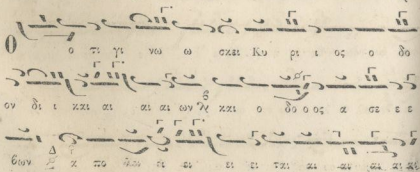 Ο ο τι γι νω ω σκει Κυ ρι ι ος ο δο
ον δι ι και αι αι ων και ο δο ο ος α σε ε ε
βων α πο λει ει ει ει ται αι αι αι αι